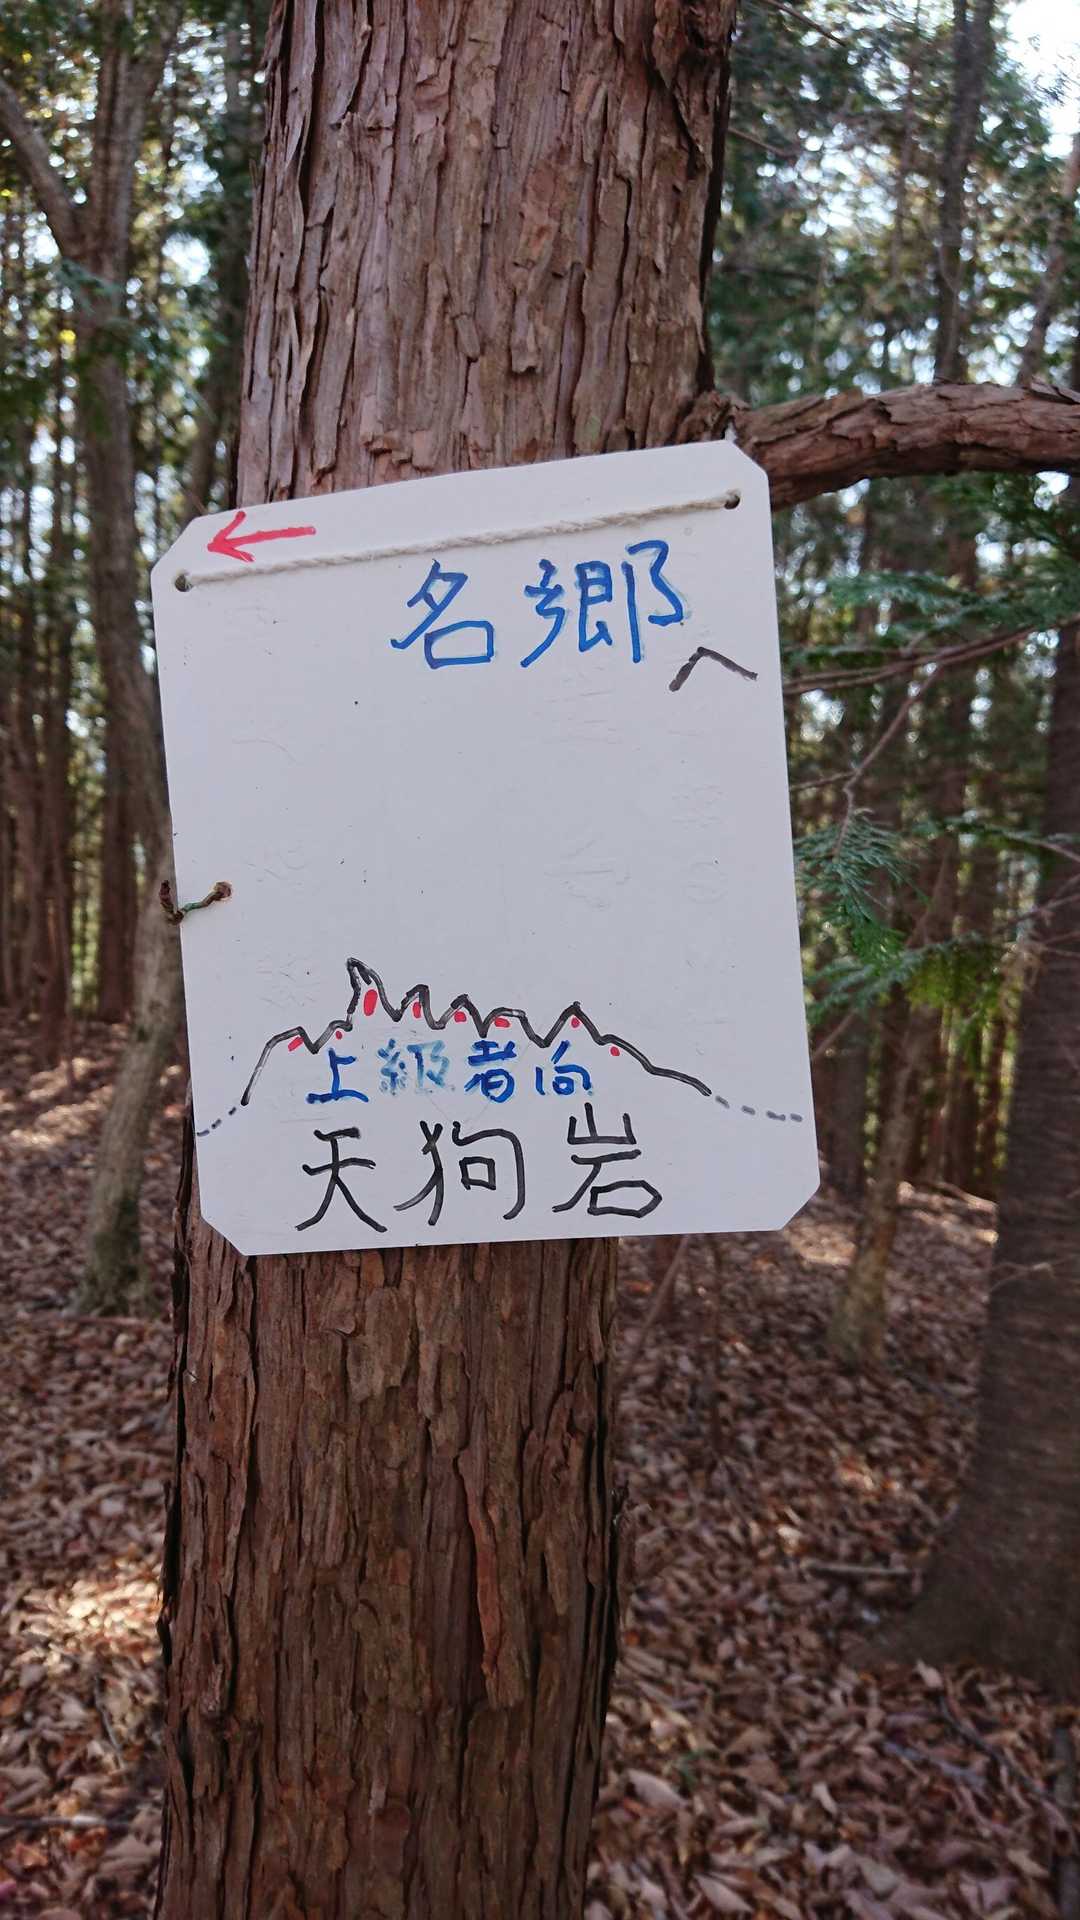 ←
名郷へ
上級者向
天狗岩